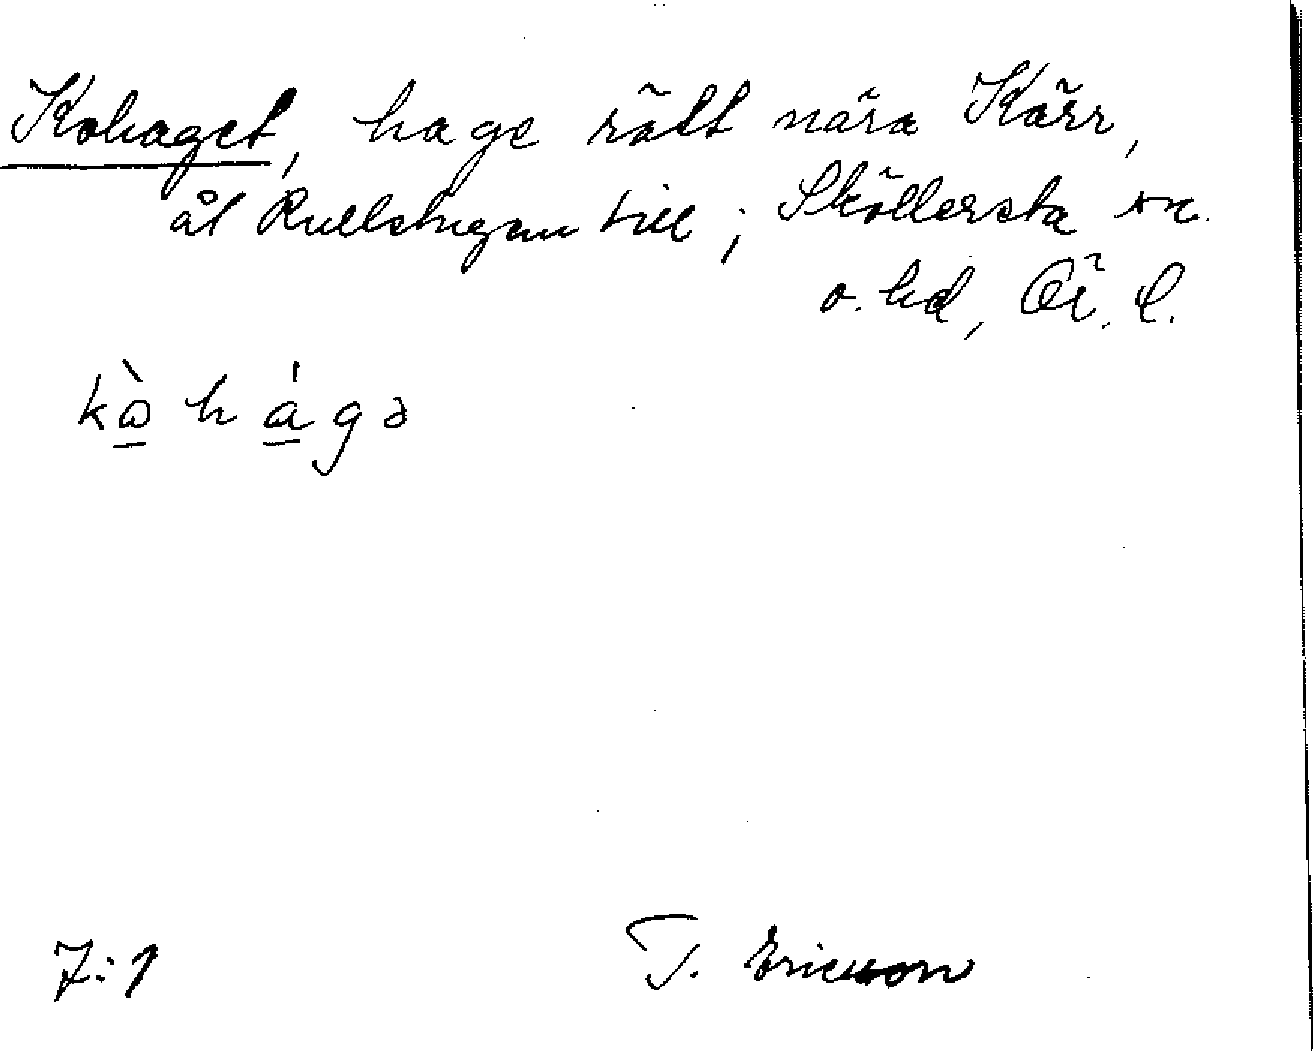 Kohaget, hage rätt nära Kärr,
åt Rullstugan till; Sköllersta sn.
o. hd, Ör. l.
kòhágə
7:1
T. Ericsson